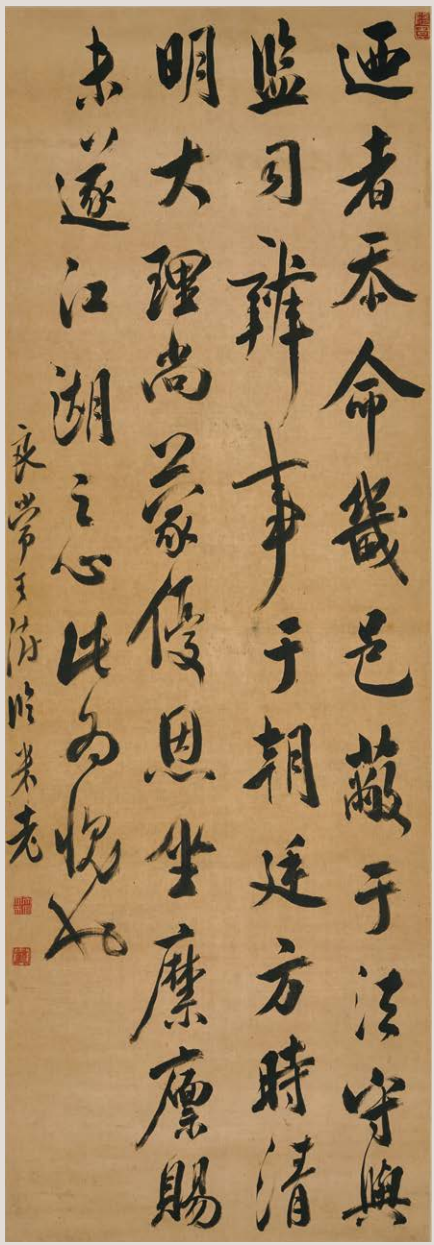 迺者忝命畿邑蔽于法守與
监司辨事于朝廷方時清
明大理尚蒙優恩坐縻廪賜
未遂江湖之心此為愧也
良常王澍臨米老